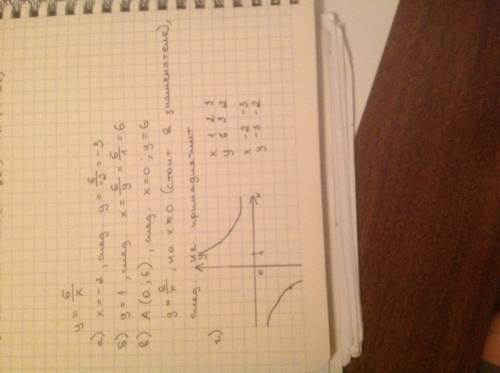 y = 6/x
а) x = -2, след. y = 6/-2 = -3
б) y = 1, след. x = 6/y = 6/1 = 6
в) A (0; 6), след. x = 0; y = 6
y = 6/x, но x ≠ 0 (стоит в знаменателе),
след. не принадлежит
г)
y
x
0
1
x 1 2 3
y 6 3 2
x -2 -3
y -3 -2